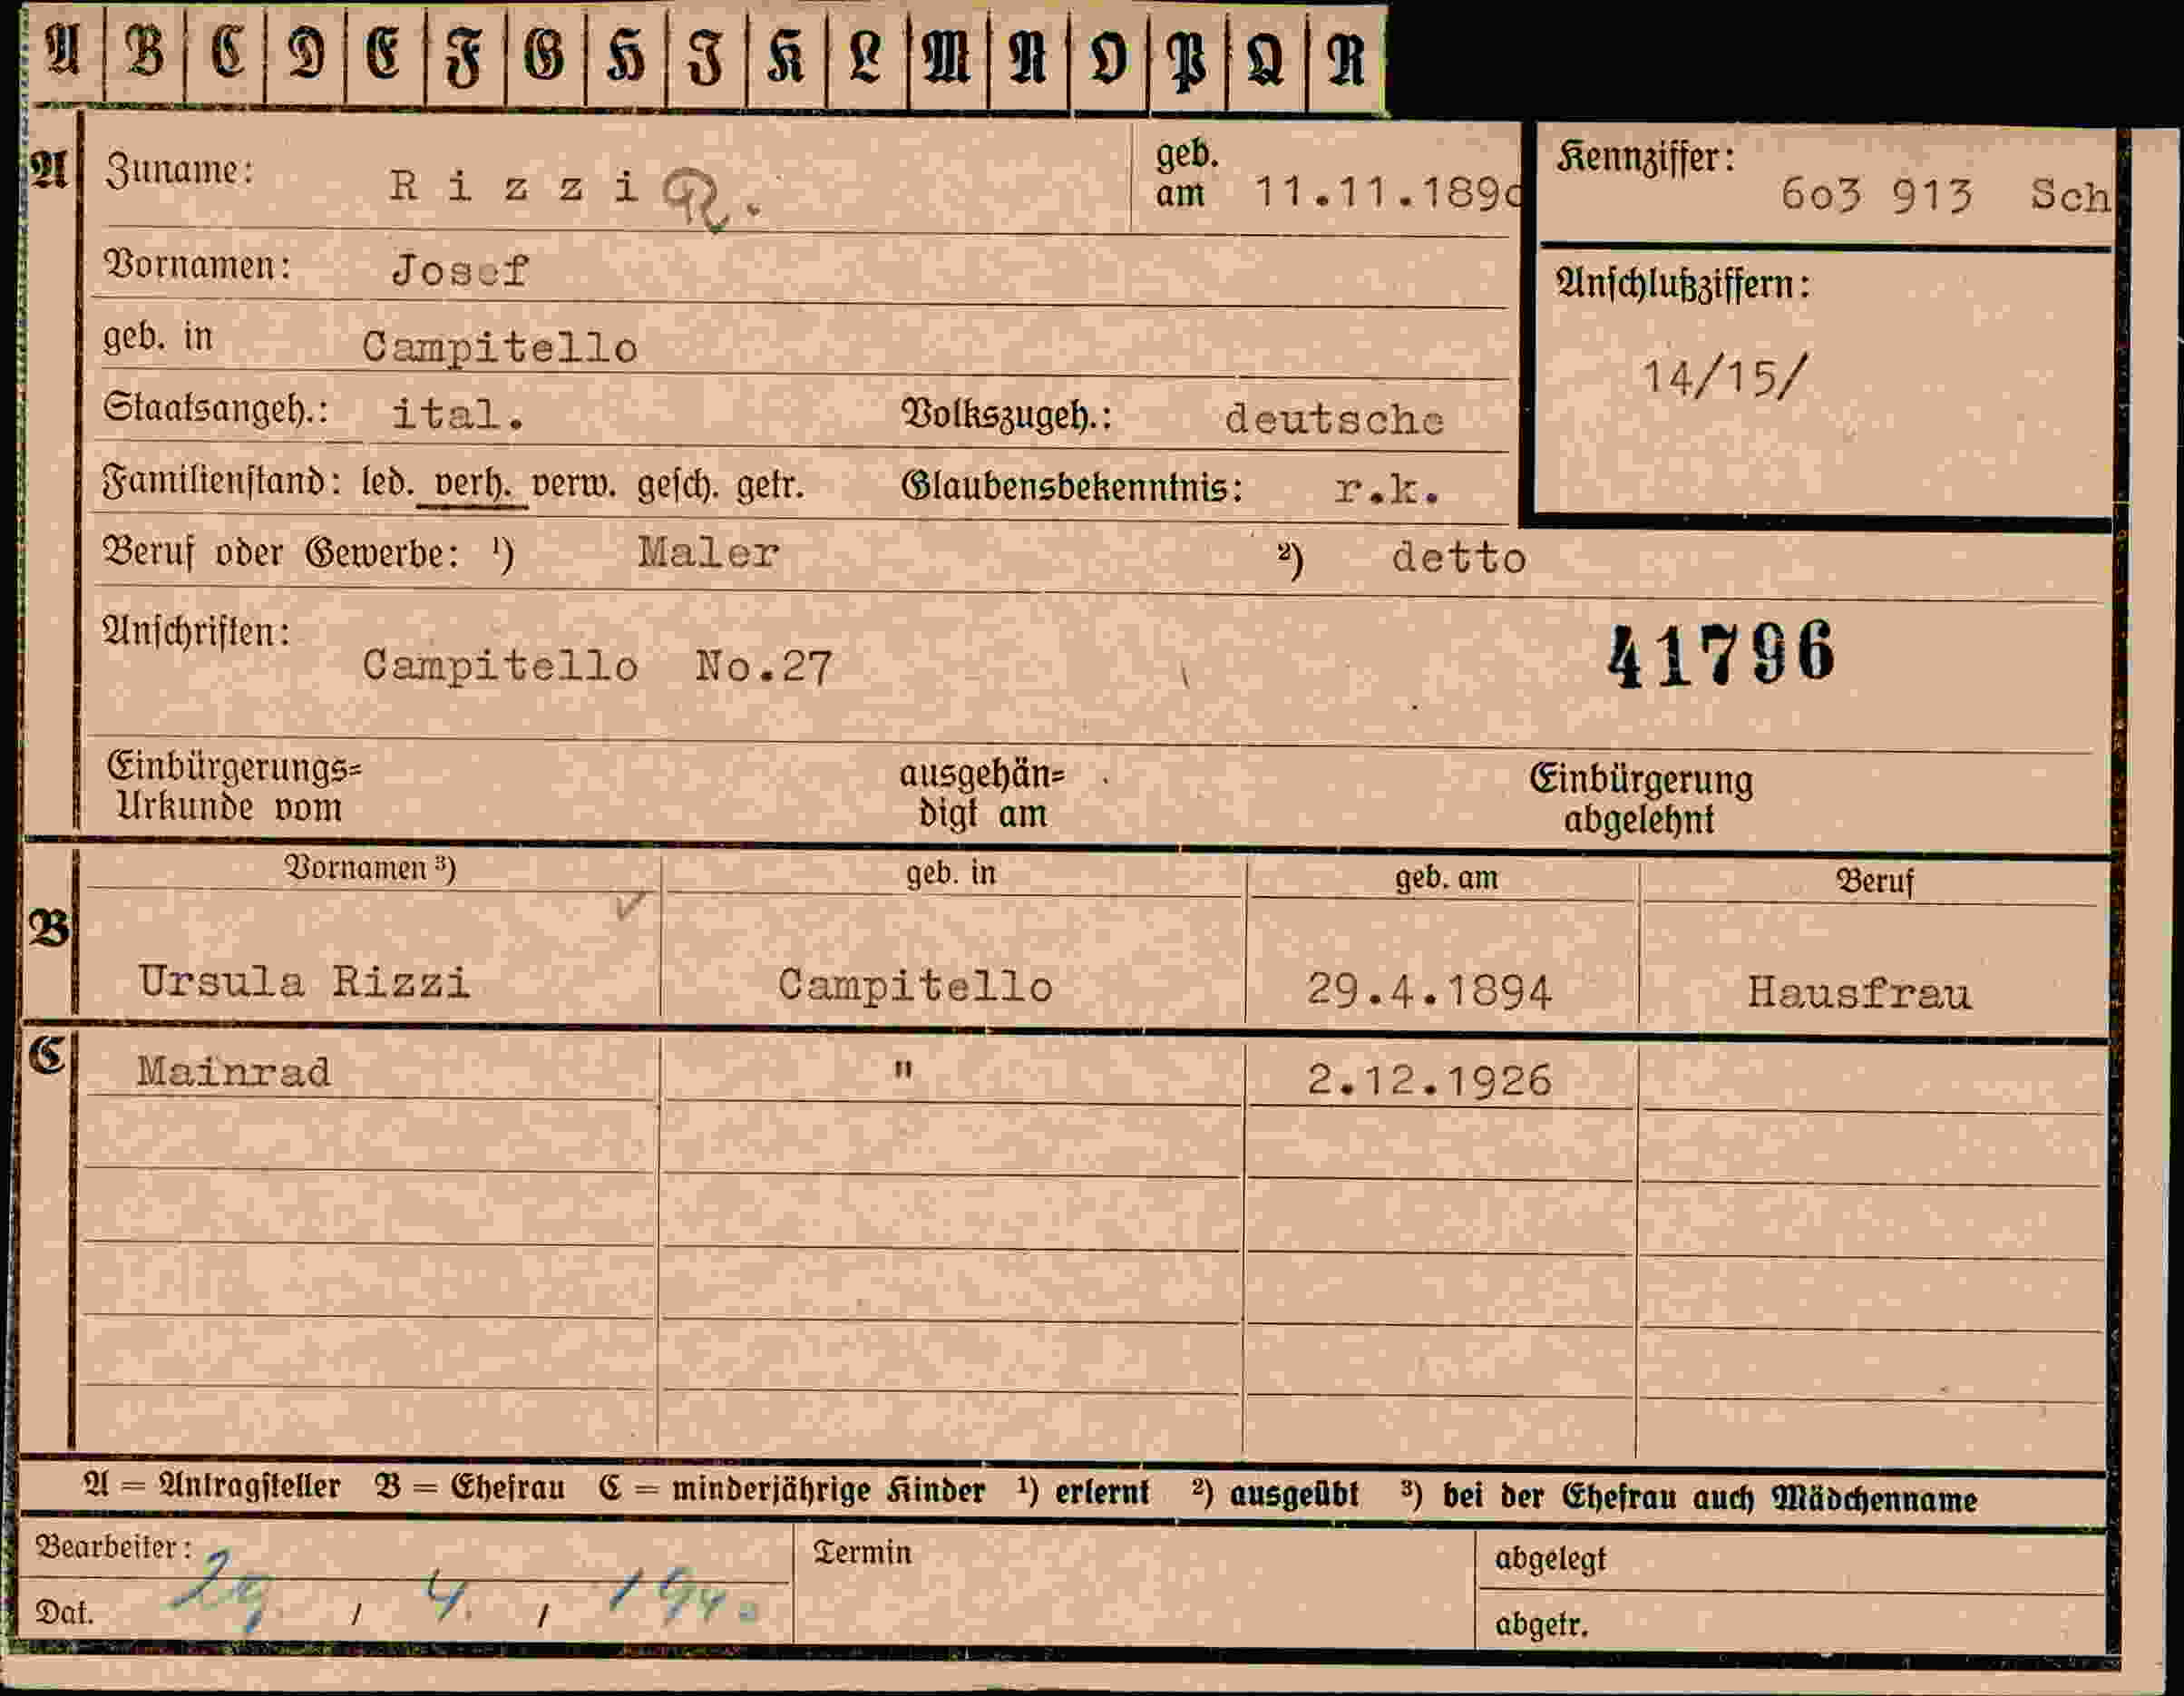 A B C D E F G H I K L M N O P Q R
A Zuname: Rizzi R. geb. am 11.11.189o Kennziffer: 6o3 913 Sch
Vornamen: Josef
Anschlußziffern:
geb. in Campitello
14/15/
Staatsangeh.: ital. Volkszugeh.: deutsche
Familienstand: led. verh. verw. gesch. getr. Glaubensbekenntnis: r.k.
Beruf oder Gewerbe: ¹) Maler ²) detto
Anschriften: Campitello No.27
41796
Einbürgerungs= Urkunde vom
ausgehän= digt am
Einbürgerung abgelehnt
Vornamen ³) geb. in geb. am Beruf
B Ursula Rizzi Campitello 29.4.1894 Hausfrau
C Mainrad " 2.12.1926
A = Antragsteller B = Ehefrau C = minderjährige Kinder ¹) erlernt ²) ausgeübt ³) bei der Ehefrau auch Mädchenname
Bearbeiter:
Dat. 29. / 4. / 1940
Termin
abgelegt
abgetr.